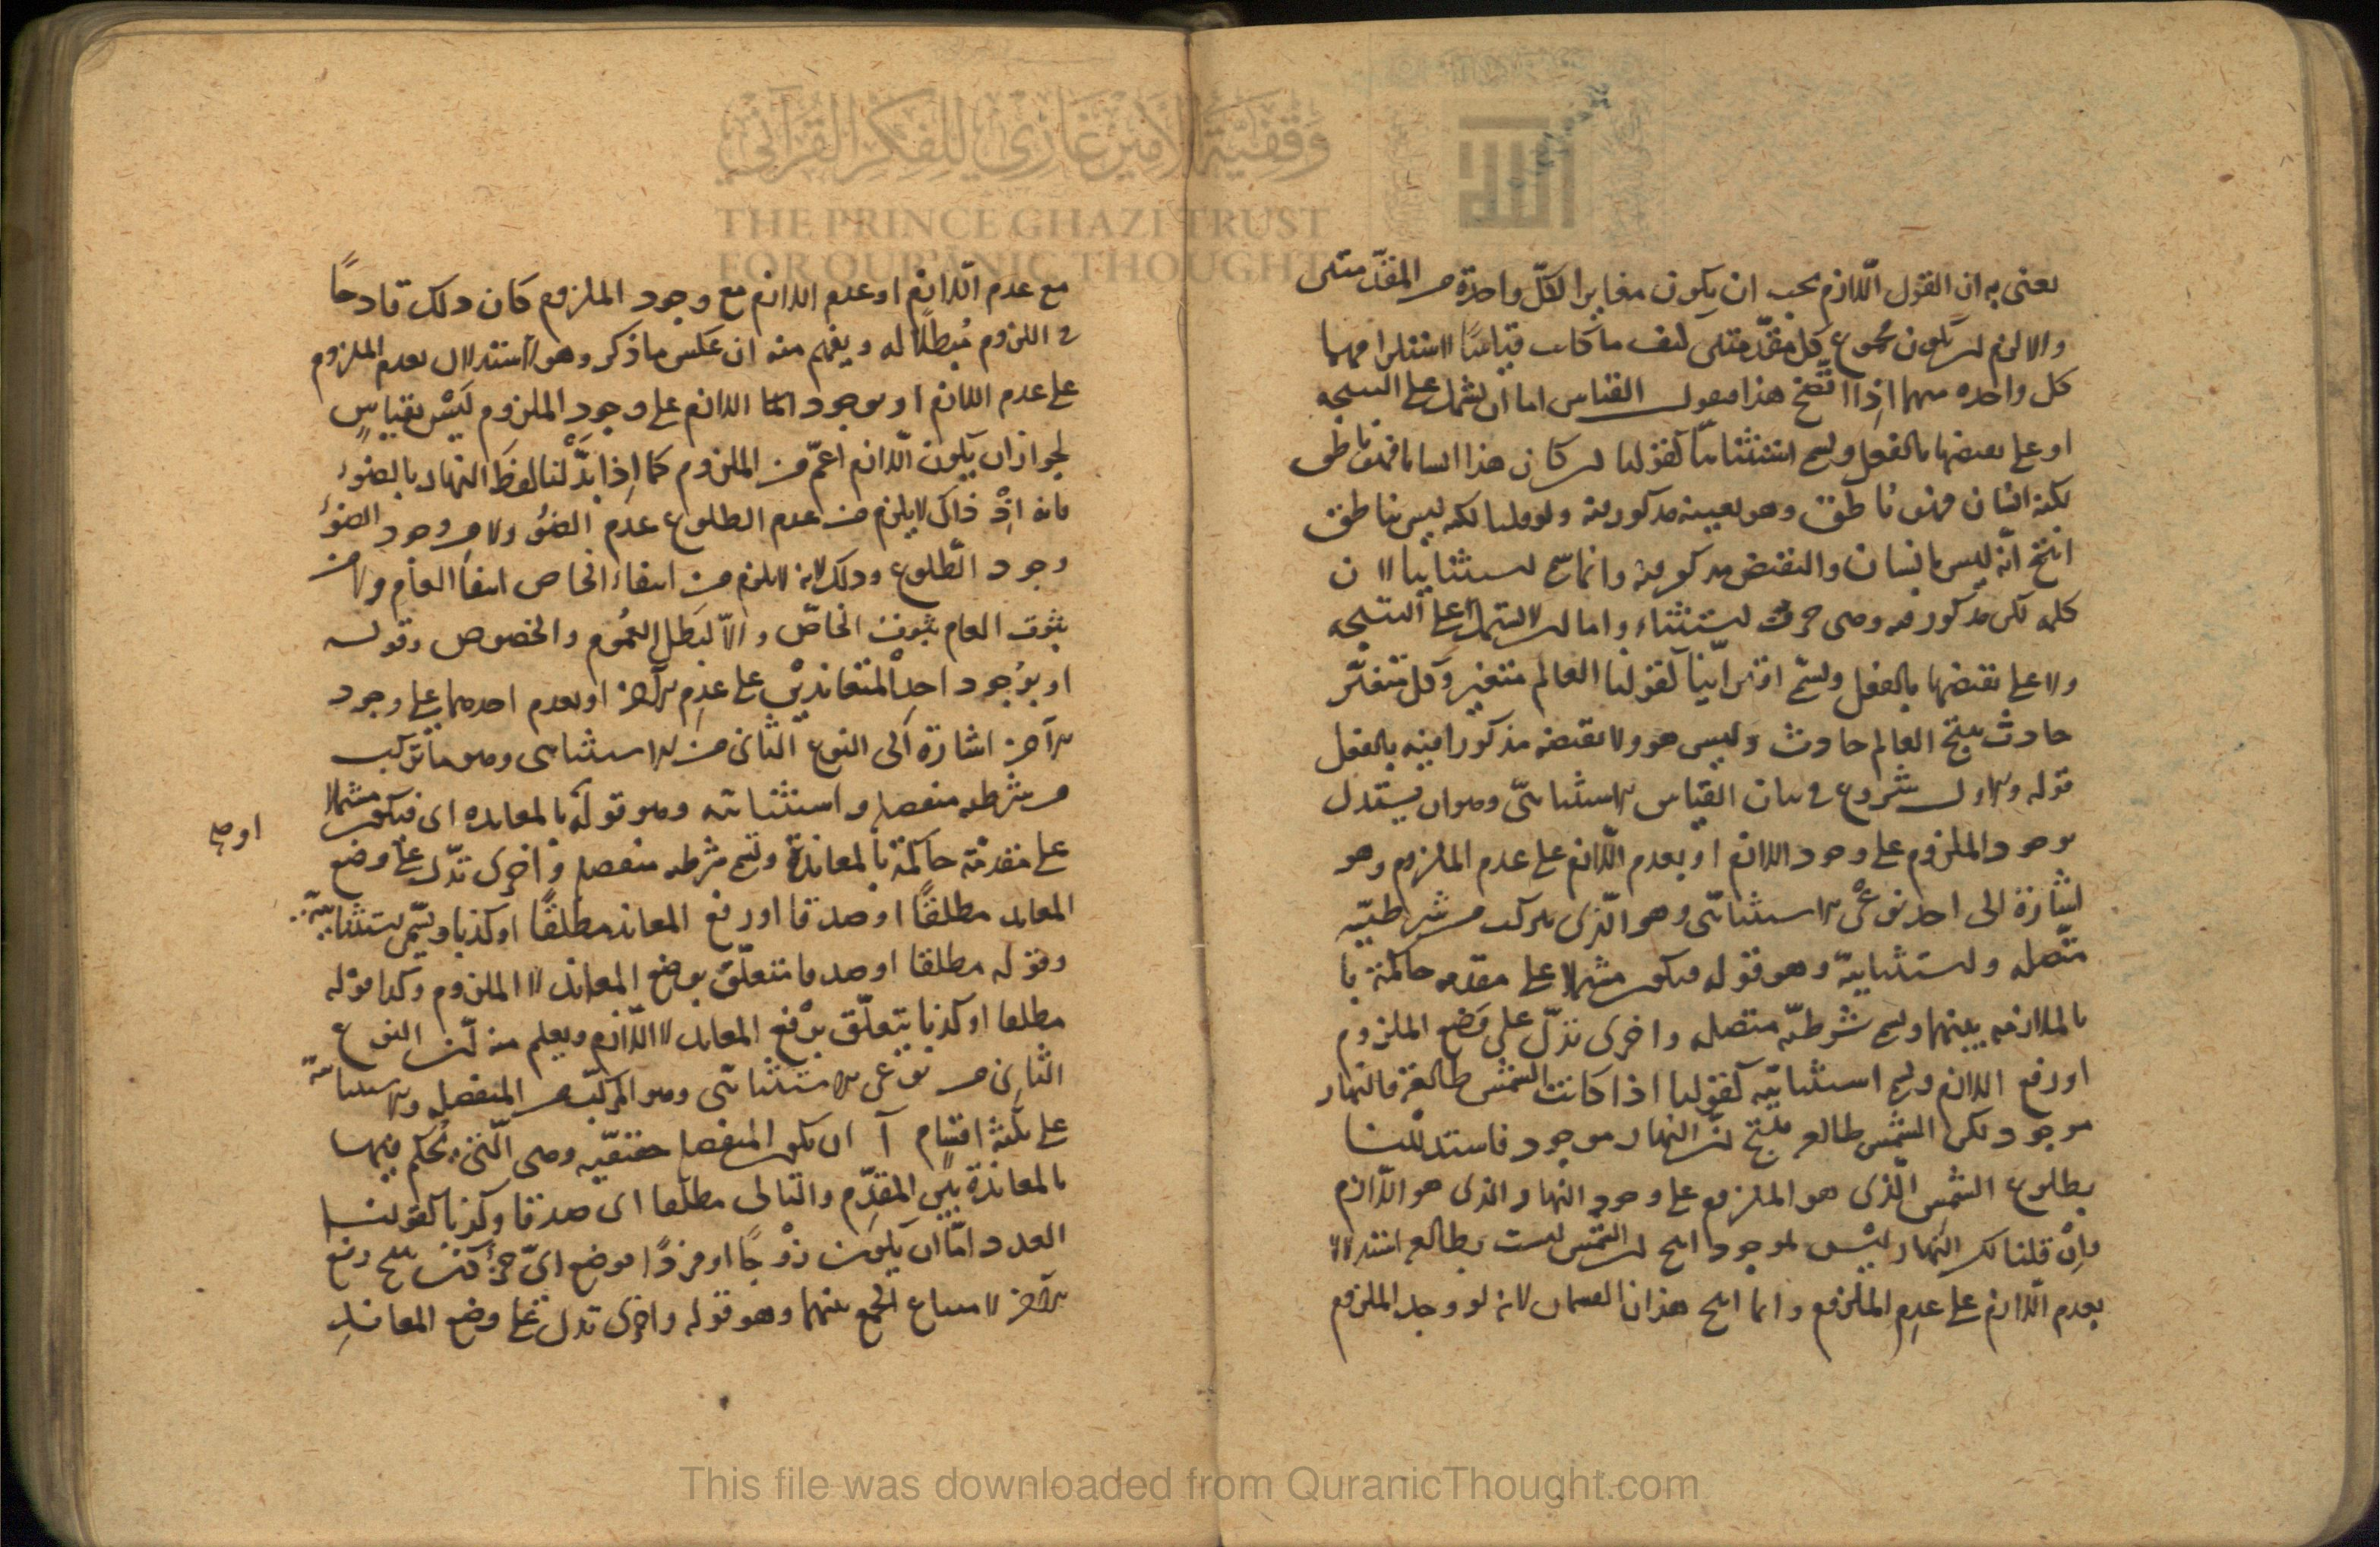 يعنى به ان القول اللّازم يجب ان يكون مغايرا لكلّ واحدة من المقدّمتين
والا لزم ان يكون مجموع كل مقدّمتين كيف ما كانت قياسًا لاستلزامهما
كل واحده منهما اذا اتضح هذا فنقول القياس اما ان يشتمل على النتيجه
او على نقيضها بالفعل ويسمى استثنائيّا كقولنا ان كان هذا انسانا فهو ناطق
لكنه انسان فهو ناطق وهو بعينه مذكور فيه ولو قلنا لكنه ليس بناطق
انتج انّه ليس بانسان والنقيض مذكور فيه وانما سمى استثنائيا لان
كلمه لكن مذكوره فيه وهى حرف استثناء واما ان لا يشتمل على النتيجه
ولا على نقيضها بالفعل ويسمّى اقترانيّا كقولنا العالم متغير وكل متغيّر
حادث ينتج العالم حادث وليس هو ولا نقيضه مذكورا فيه بالفعل
قوله والاول شروع فى بيان القياس الاستثنائىّ وهو ان يستدل
بوجود الملزوم على وجود اللازم او بعدم اللّازم على عدم الملزوم وهو
اشارة الى احد نوعى الاستثنائىّ وهو الّذى يتركب من شرطيّه
متّصله واستثنائيّة وهو قوله فيكون مشتملا على مقدمه حاكمة با
بالملازمه بينهما ويسمى شرطيّه متصله واخرى تدلّ على وضع الملزوم
او رفع اللازم ويسمى استثنائيّه كقولنا اذا كانت الشمس طالعة فالنهار
موجود لكن الشمس طالعه ينتج ان النهار موجود فاستدللنا
بطلوع الشمس الّذى هو الملزوم على وجود النهار الذى هو اللّازم
وان قلنا لكن النهار ليس بموجود انتج ان الشمس ليست بطالعه استدلالا
بعدم اللّازم على عدم الملزوم وانما انتج هذان القسمان لانه لو وجد الملزوم
مع عدم اللّازم او عدم اللازم مع وجود الملزوم كان ذلك قادحًا
فى اللزوم مُبطلًا له ويفهم منه ان عكس ما ذكر وهو الاستدلال بعدم الملزوم
على عدم اللازم او بوجود اللازم على وجود الملزوم لَيْسَ بقياسٍ
لجواز ان يكون اللّازم اعمّ من الملزوم كما اذا بَدَّلْنا لفظ النهار بالضوء
فانه اذْ ذاك لا يلزم من عدم الطلوع عدم الضوُ ولا من وجود الضوُ
وجود الطّلوع وذلك لانه لا يلزم من انتفاء الخاص انتفا العام ولا من
ثبوت العام ثبوت الخاصّ والّا لبَطَل العمُوم والخصوص وقوله
او بوُجود احد المتعانديْن على عدم الآخر او بعدم احدهما على وجود
الآخر اشارة الى النوع الثّانى من الاستثنائى وهو ما تركب
من شرطيه منفصله واستثنائيه وهو قوله بالمعانده اى فيكون مشتملا
على مقدمة حاكمة بالمعاندة ويسمى شرطيه منفصله واخرى تدّل على وضع
او صله
المعاند مطلقًا او صدقا او رفع المعاند مطلقًا او كذبا ويسمّى استثنائيّة
وقوله مطلقا او صدقا متعلّق بوضع المعاند لا الملزوم وكذا قوله
مطلقا او كذبا يتعلّق برفع المعاند لا اللّازم ويعلم منه انّ النوع
الثّانى من نوعى الاستثنائىّ وهو المركّب من المنفصله والاستثنائيّة
على ثلثة اقسام آ ان يكون المنفصله حقيقيّه وهى الّتى يُحكم فيها
بالمعاندة بين المقدّم والتالى مطلقا اى صدقا وكذبا كقولنا
العدد امّا ان يكون زوْجًا او فردًا فوضع اىّ جزء كان ينتج رفع
الآخر لامتناع الجمع بينهما وهو قوله واخرى تدل على وضع المعاند
وقفية الأمير غازي للفكر القرآني
THE PRINCE GHAZI TRUST
FOR QUR'ANIC THOUGHT
This file was downloaded from QuranicThought.com